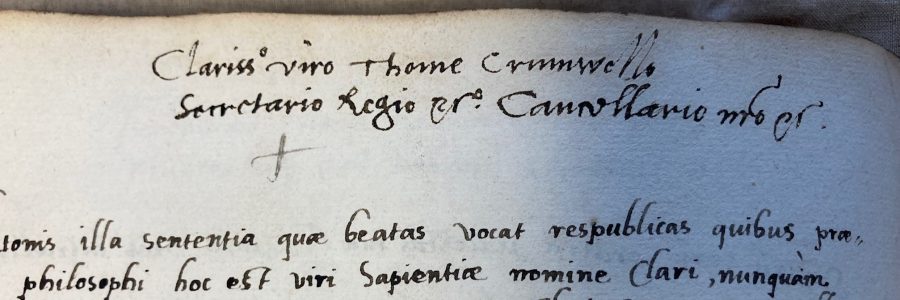 Clariss.o viro Thome Crumwello
Secretario Regio &c.o Cancellario nr̃o &c.
tonis illa sententia quæ beatas vocat respublicas quibus præ„
philosophi hoc est viri Sapientiæ nomine Clari, nunquàm